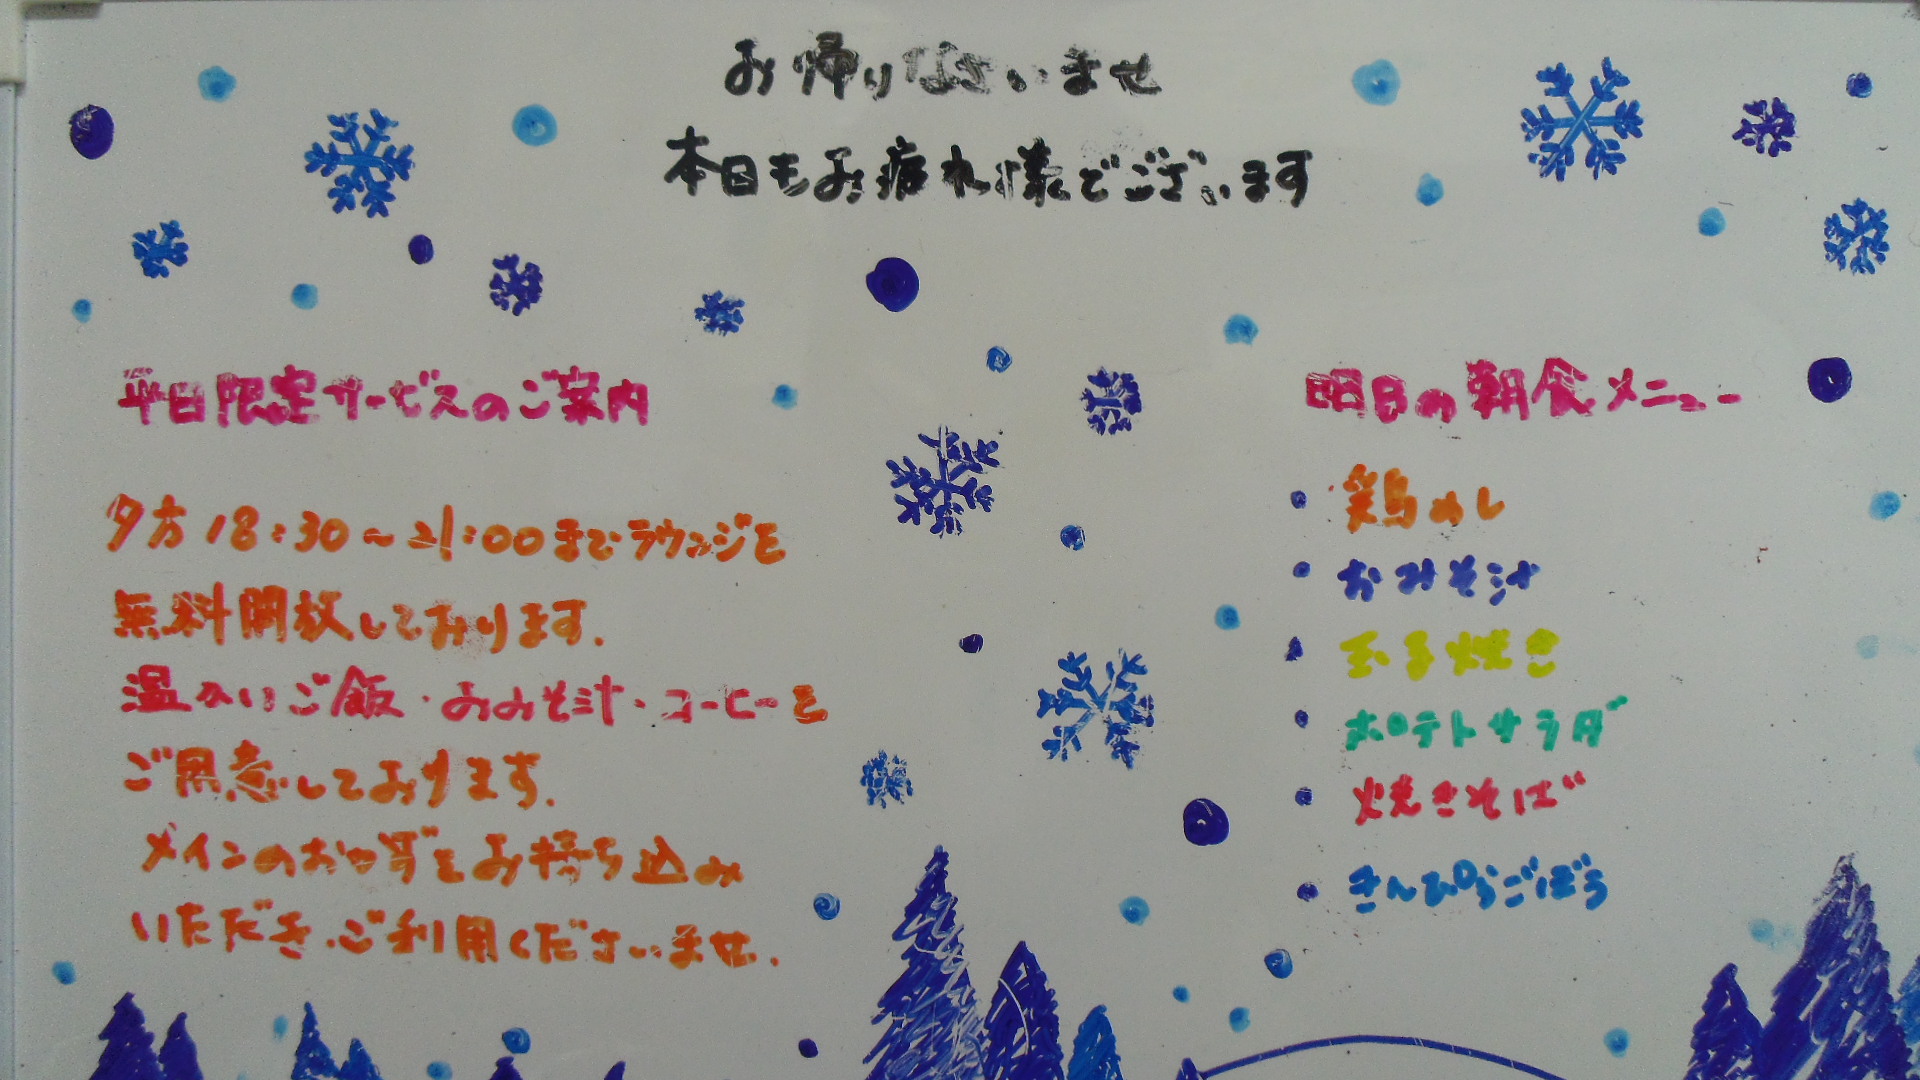 お帰りなさいませ
本日もお疲れ様でございます
平日限定サービスのご案内
夕方18:30~21:00までラウンジを
無料開放しております.
温かいご飯・おみそ汁・コーヒーを
ご用意しております.
メインのおかずをお持ち込み
いただき、ご利用くださいませ.
明日の朝食メニュー
・鶏めし
・おみそ汁
・玉子焼き
・ポテトサラダ
・焼きそば
・きんぴらごぼう